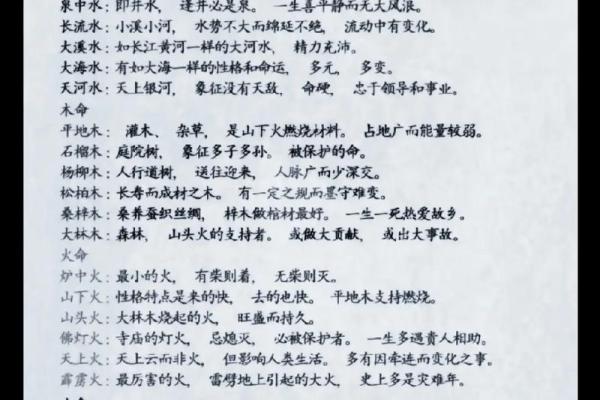 泉中水：即井水， 逢井必是泉。 一生喜平静而无大风浪。
长流水：小溪小河， 水势不大而绵延不绝， 流动中有变化。
大溪水：如长江黄河一样的大河水， 精力充沛。
大海水：有如大海一样的性格和命运， 多元， 多变。
天河水：天上银河， 象征没有天敌， 命硬， 忠于领导和事业。
木命
平地木： 灌木、 杂草， 是山下火燃烧材料。 占地广而能量较弱。
石榴木：庭院树， 象征多子多孙。 被保护的命。
杨柳木：人行道树， 送往迎来， 人脉广而少深交。
松柏木：长寿而成材之木。 有一定之规而墨守难变。
桑梓木：桑养蚕织丝绸， 梓木做棺材最好。 一生一死热爱故乡。
大林木：森林， 山头火的支持者。 或做大贡献， 或出大事故。
火命
炉中火：最小的火， 有柴则着， 无柴则灭。
山下火：性格特点是来的快， 去的也快。 平地木支持燃烧。
山头火：大林木烧起的火， 旺盛而持久。
佛灯火：寺庙的灯火， 忌熄灭， 必被保护者。 一生多遇贵人相助。
天上火：天上云而非火， 但影响人类生活。 多有因牵连而变化之事。
霹雳火：最厉害的火， 雷劈地上引起的大火， 史上多是灾难年。